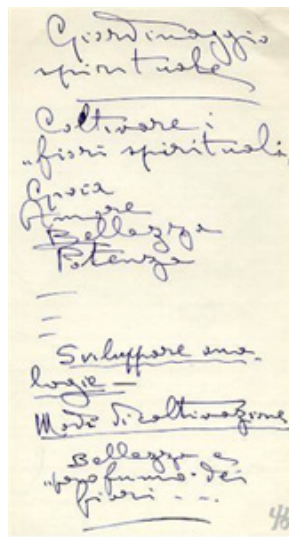 Giardinaggio
spirituale
Coltivare i
"fiori spirituali"
Gioia
Amore
Bellezza
Potenza
Sviluppare ana-
logie -
Modi di coltivazione
Bellezza e
"profumo" dei
fiori - - -